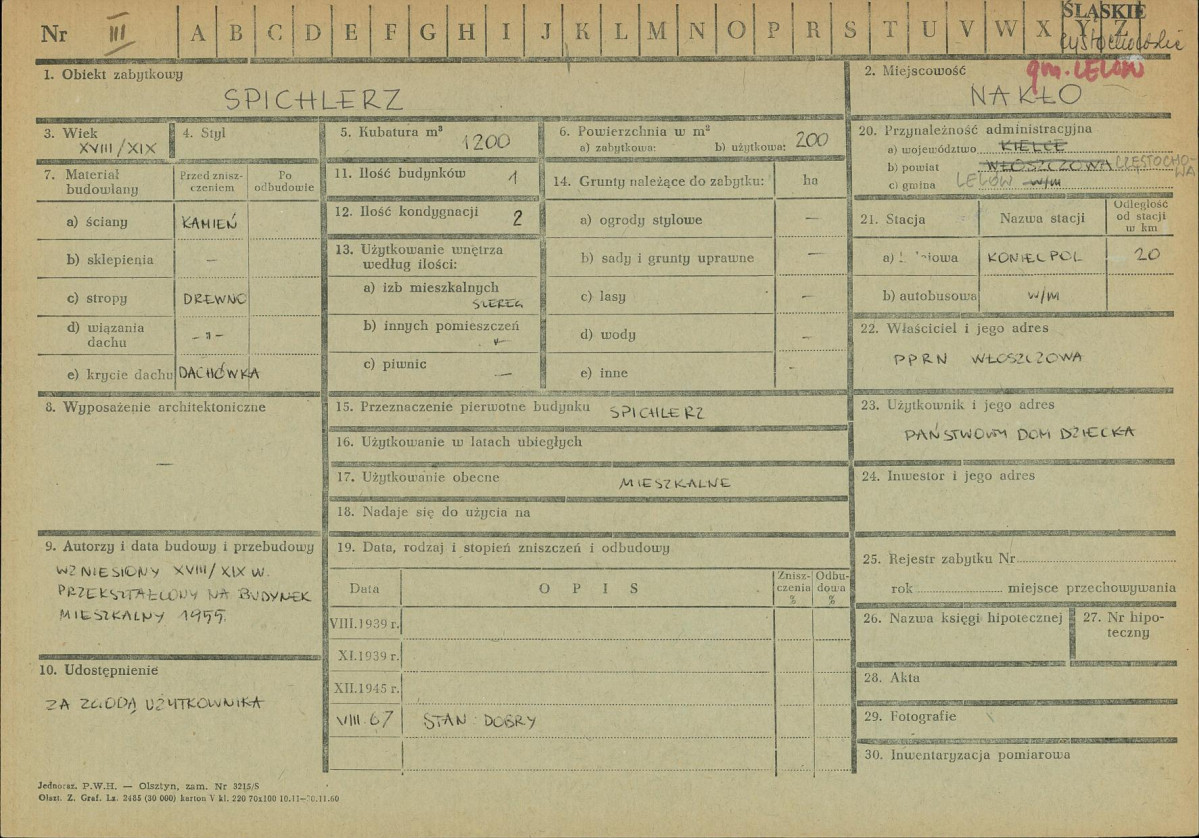 ŚLĄSKIE
Nr III A B C D E F G H I J K L M N O P R S T U V W X Y Z
gm. LELÓW
1. Obiekt zabytkowy
SPICHLERZ
2. Miejscowość
NAKŁO
3. Wiek
XVIII/XIX
4. Styl
5. Kubatura m³
1200
6. Powierzchnia w m²
a) zabytkowa: b) użytkowa: 200
7. Materiał budowlany
Przed zniszczeniem
Po odbudowie
a) ściany KAMIEŃ
b) sklepienia —
c) stropy DREWNO
d) wiązania dachu – " –
e) krycie dachu DACHÓWKA
8. Wyposażenie architektoniczne
—
9. Autorzy i data budowy i przebudowy
WZNIESIONY XVIII/XIX W.
PRZEKSZTAŁCONY NA BUDYNEK
MIESZKALNY 1955.
10. Udostępnienie
ZA ZGODĄ UŻYTKOWNIKA
11. Ilość budynków 1
12. Ilość kondygnacji 2
13. Użytkowanie wnętrza
według ilości:
a) izb mieszkalnych
SZEREG
b) innych pomieszczeń
c) piwnic —
14. Grunty należące do zabytku: ha
a) ogrody stylowe —
b) sady i grunty uprawne —
c) lasy –
d) wody –
e) inne -
15. Przeznaczenie pierwotne budynku SPICHLERZ
16. Użytkowanie w latach ubiegłych
17. Użytkowanie obecne MIESZKALNE
18. Nadaje się do użycia na
19. Data, rodzaj i stopień zniszczeń i odbudowy
Data O P I S Zniszczenia % Odbudowa %
VIII.1939 r.
XI.1939 r.
XII.1945 r.
VIII 67 STAN DOBRY
20. Przynależność administracyjna
a) województwo KIELCE
b) powiat WŁOSZCZOWA CZĘSTOCHOWA
c) gmina LELÓW w/m
21. Stacja Nazwa stacji Odległość od stacji w km
a) KONIECPOL 20
b) autobusowa w/m
22. Właściciel i jego adres
PPRN WŁOSZCZOWA
23. Użytkownik i jego adres
PAŃSTWOWY DOM DZIECKA
24. Inwestor i jego adres
25. Rejestr zabytku Nr
rok miejsce przechowywania
26. Nazwa księgi hipotecznej
27. Nr hipoteczny
28. Akta
29. Fotografie
30. Inwentaryzacja pomiarowa
Jednoraz. P.W.H. — Olsztyn, zam. Nr 3215/S
Olszt. Z. Graf. Lz. 2485 (30 000) karton V kl. 220 70x100